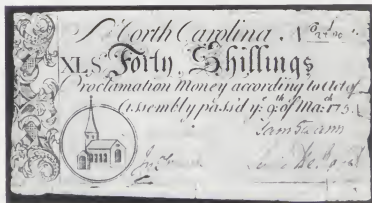 North Carolina, No
XLS Forty Shillings
Proclamation Money according to Act of
Assembly pass'd ye 9th of Mar:ch 175
Sam Swann